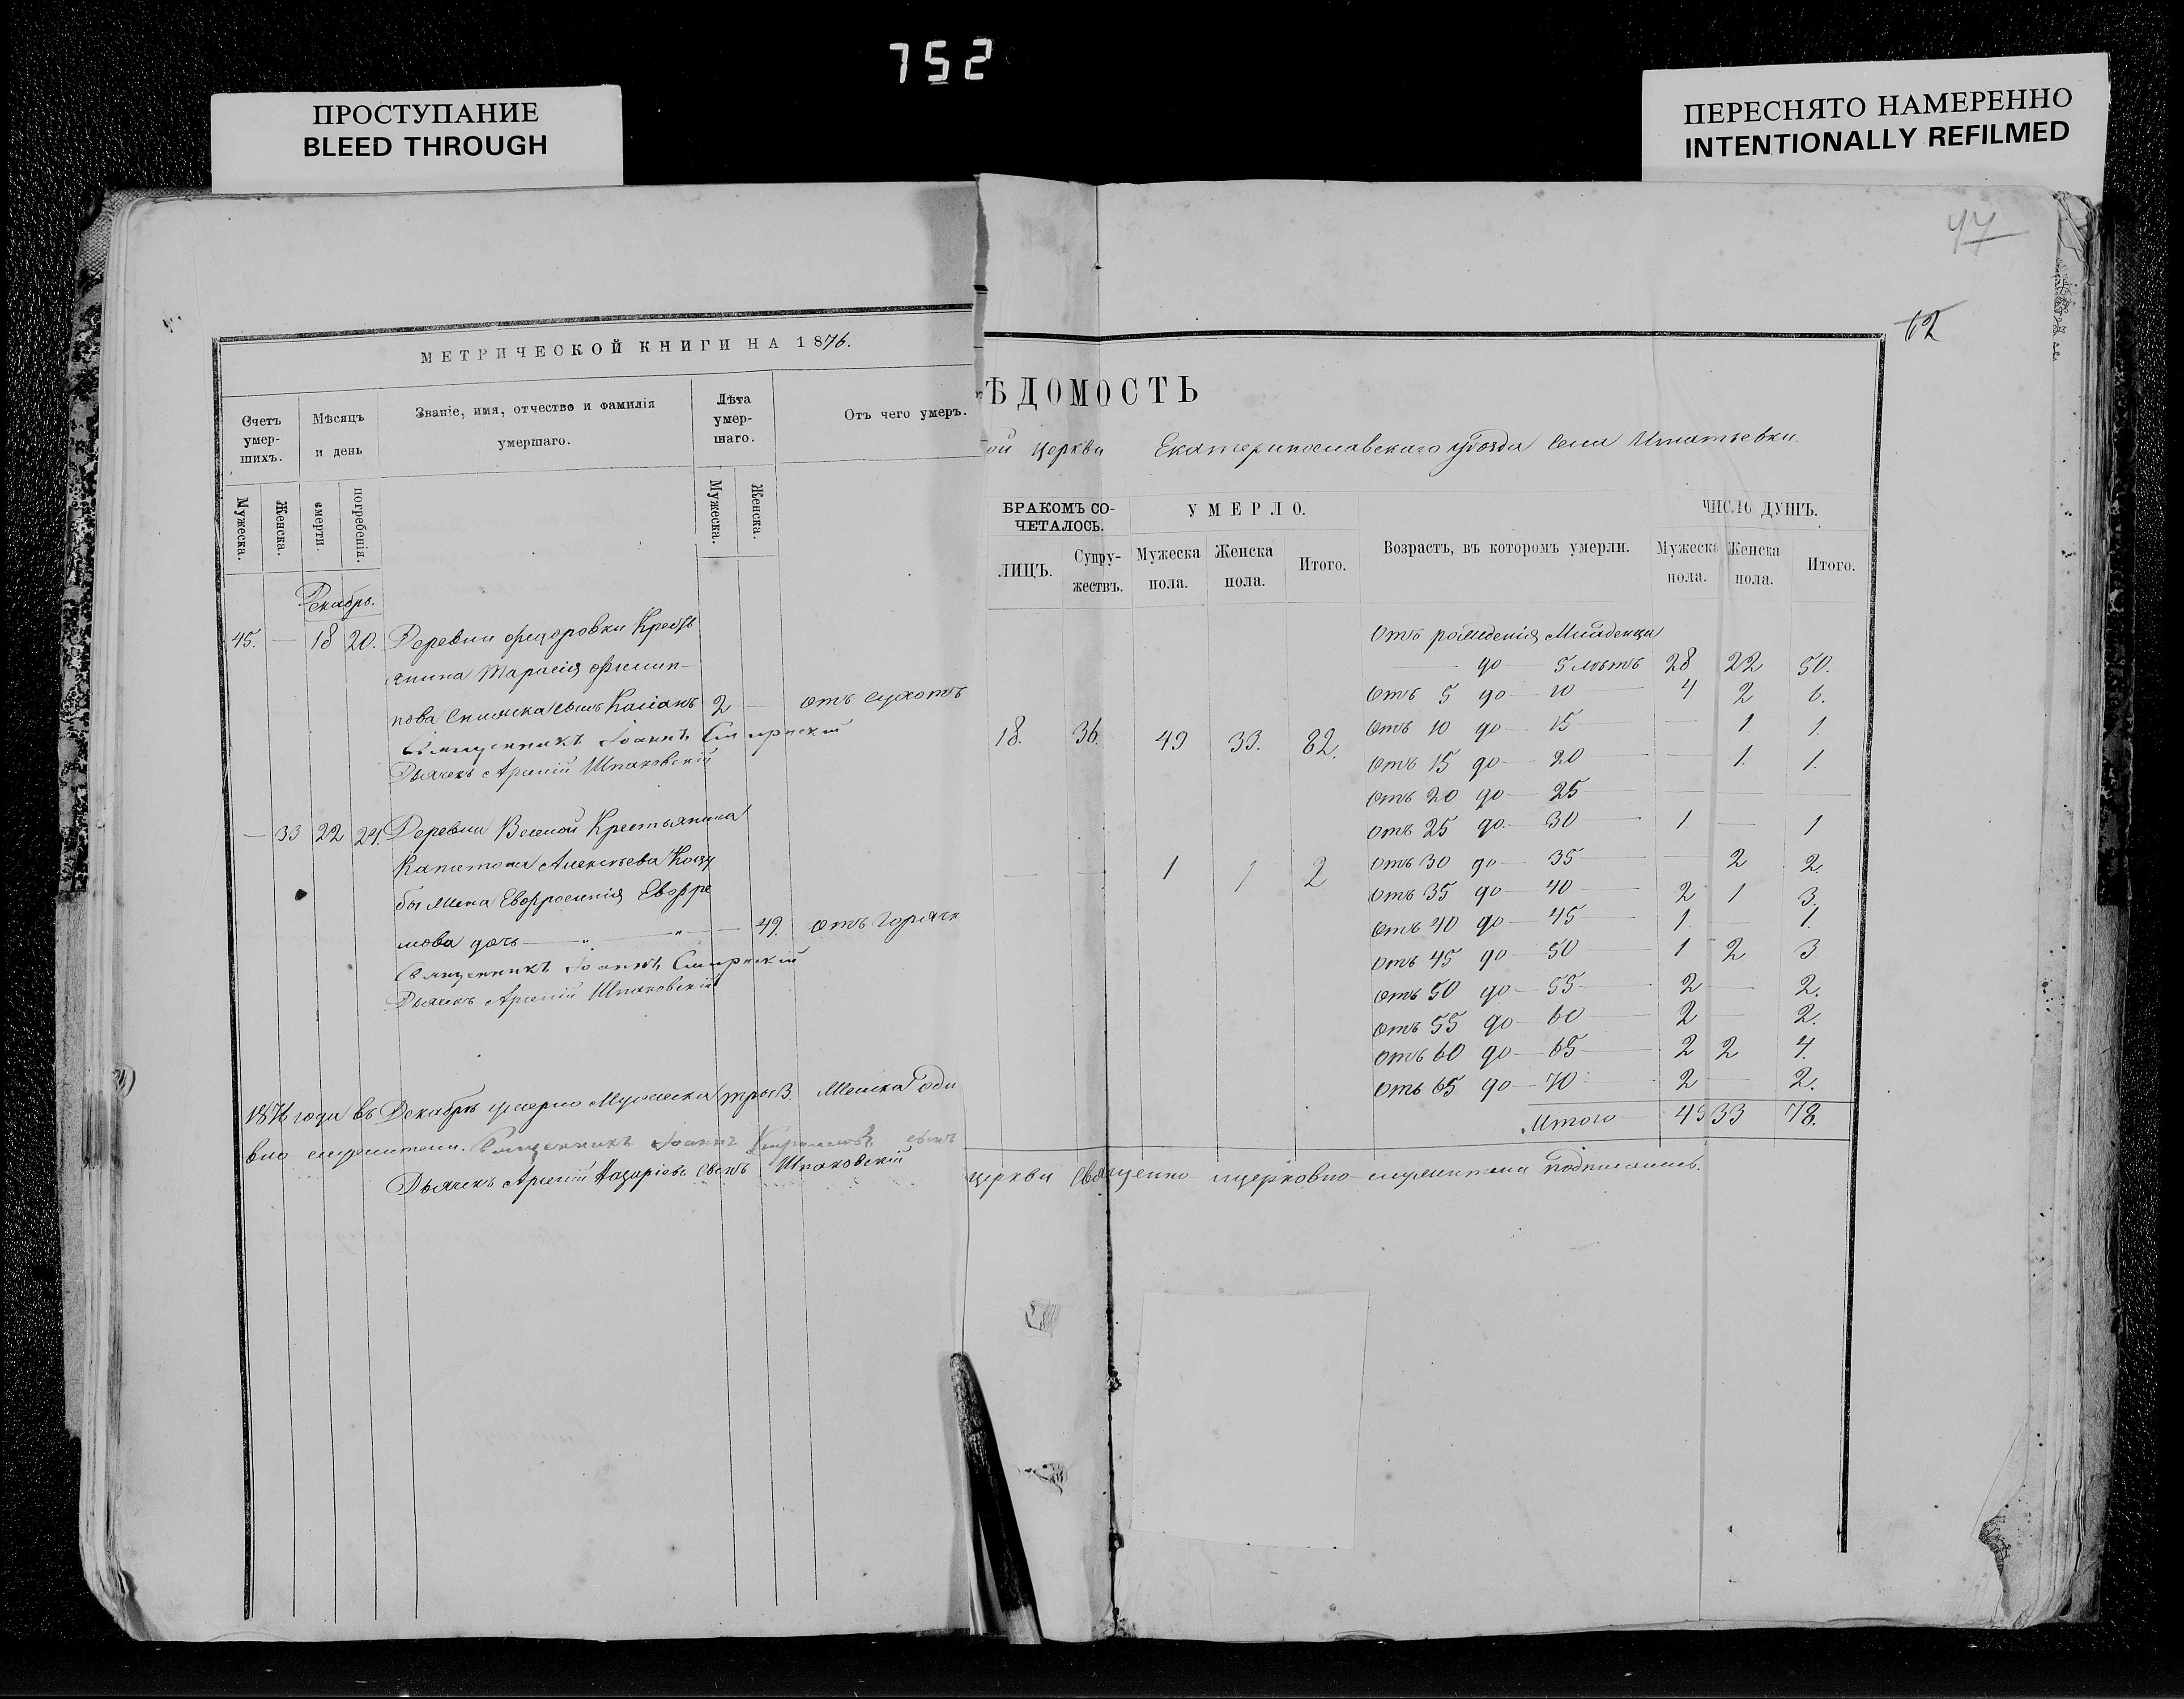 752
ПРОСТУПАНИЕ
BLEED THROUGH
ПЕРЕСНЯТО НАМЕРЕННО
INTENTIONALLY REFILMED
47
62
МЕТРИЧЕСКОЙ КНИГИ НА 1876.
Счетъ умер-шихъ.
Мѣсяцъ и день
Званіе, имя, отчество и фамилія умершаго.
Лѣта умер-шаго.
Отъ чего умеръ.
Мужеска.
Женска.
смерти.
погребенія.
Мужеска.
Женска.
Декабрь.
45. — 18 20. Деревни Федоровки Кресть
янина Тарасія Филип-
пова сынъ 2 — отъ сухотъ
Священникъ Іоаннъ
Дьячекъ Арсеній Шпаковскій
— 33 22 24. Деревни Крестьянина
Капитона Алексѣева
бы жена Евфросинія Евфре
мова дочь — „ — „ — 49. отъ горячк
Священникъ Іоаннъ
Дьячекъ Арсеній Шпаковскій
1876 года въ Декабрѣ умерло Мужеска три 3. Женска
вно служители. Священникъ Іоаннъ
Дьячекъ Арсеній Назаріевъ сынъ Шпаковскій
ѢДОМОСТЬ
ой церкви Екатеринославскаго уѣзда села Игнатьевки.
БРАКОМЪ СО-ЧЕТАЛОСЬ.
УМЕРЛО.
Возрастъ, въ которомъ умерли.
ЧИСЛО ДУШЪ.
ЛИЦЪ.
Супру-жествъ.
Мужеска пола.
Женска пола.
Итого.
Мужеска пола.
Женска пола.
Итого.
Отъ рожденія Младенца
до — 5 лѣтъ 28 22 50.
Отъ 5 до — 10 4 2 6.
Отъ 10 до — 15 — 1 1.
18. 36. 49 33. 82.
Отъ 15 до — 20 — 1. 1.
Отъ 20 до — 25 — — —
Отъ 25 до — 30 1. — 1
— — 1 1 2
Отъ 30 до — 35 — 2 2.
Отъ 35 до — 40 2 1 3.
Отъ 40 до — 45 1. — 1.
Отъ 45 до — 50 1 2 3
Отъ 50 до — 55 2 — 2.
Отъ 55 до — 60 2 — 2.
Отъ 60 до — 65 2 2 4.
Отъ 65 до — 70 2 — 2.
Итого 45 33 78.
церкви священно-ицерковно-служители подписались.